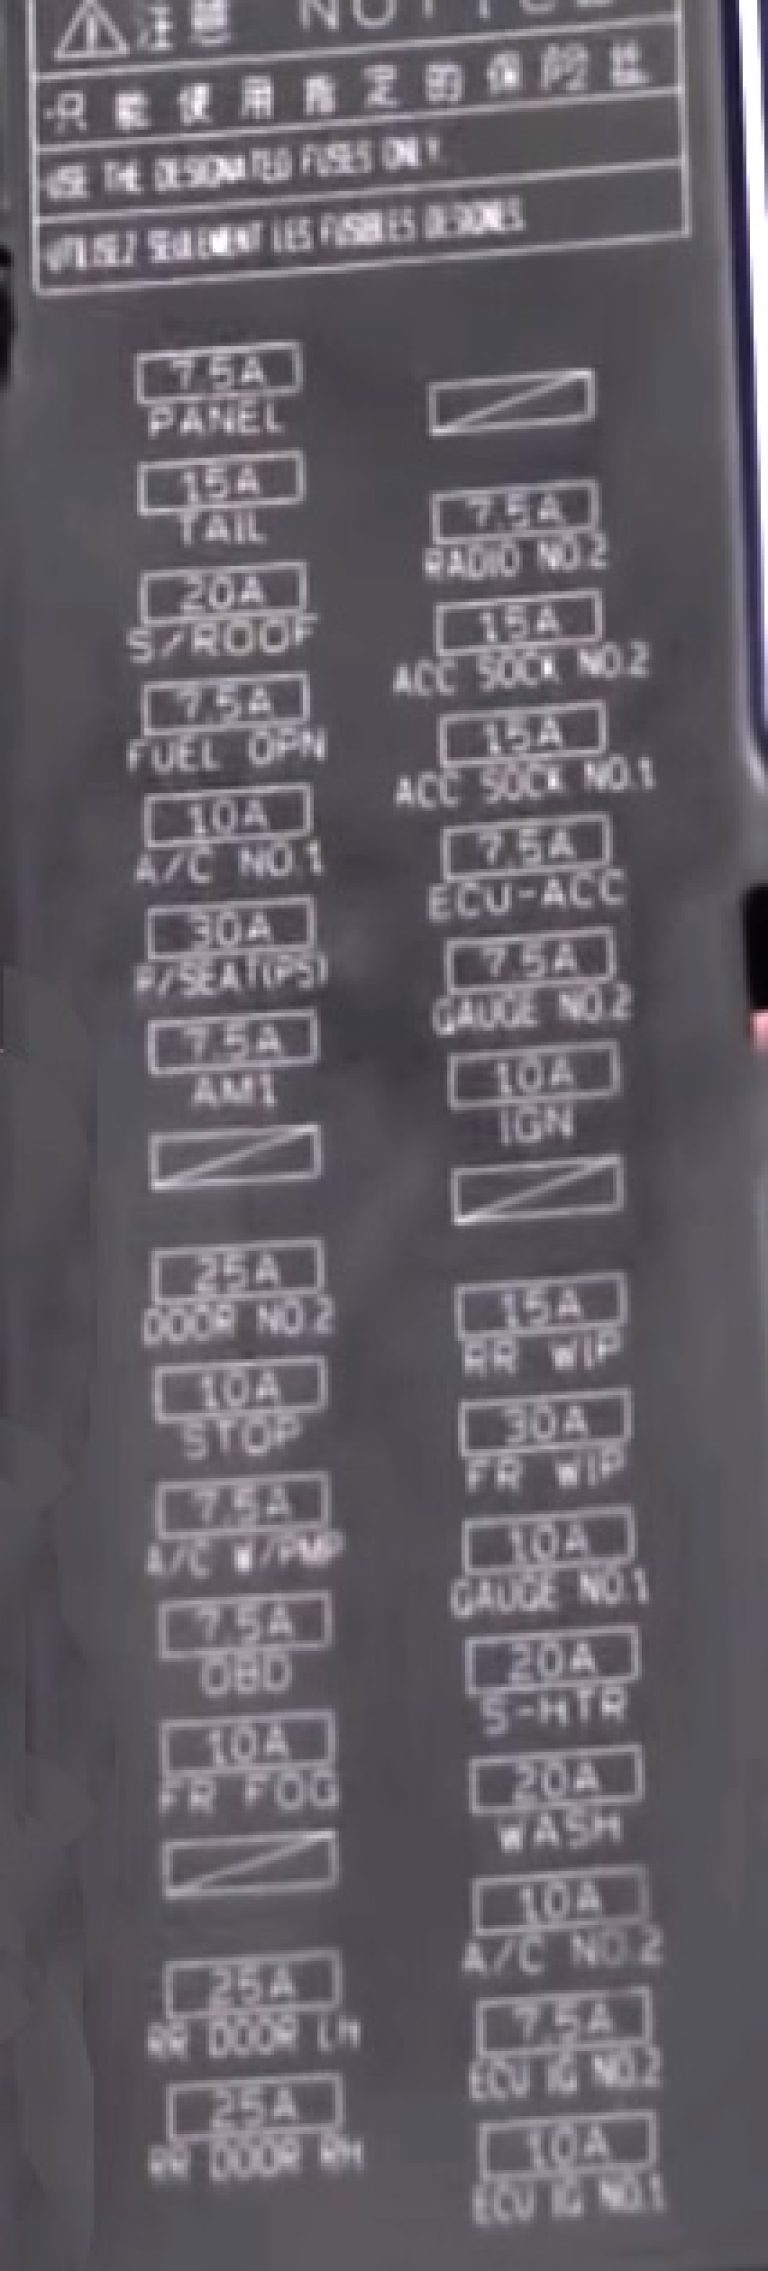 注意 NOTICE
·只能使用指定的保险丝
·USE THE DESIGNATED FUSES ONLY.
·UTILISEZ SEULEMENT LES FUSIBLES DESIGNES.
7.5A
PANEL
15A
TAIL
20A
S/ROOF
7.5A
FUEL OPN
10A
A/C NO.1
30A
P/SEAT(PS)
7.5A
AM1
25A
DOOR NO.2
10A
STOP
7.5A
A/C W/PMP
7.5A
OBD
10A
FR FOG
25A
RR DOOR LH
25A
RR DOOR RH
7.5A
RADIO NO.2
15A
ACC SOCK NO.2
15A
ACC SOCK NO.1
7.5A
ECU-ACC
7.5A
GAUGE NO.2
10A
IGN
15A
RR WIP
30A
FR WIP
10A
GAUGE NO.1
20A
S-HTR
20A
WASH
10A
A/C NO.2
7.5A
ECU IG NO.2
10A
ECU IG NO.1